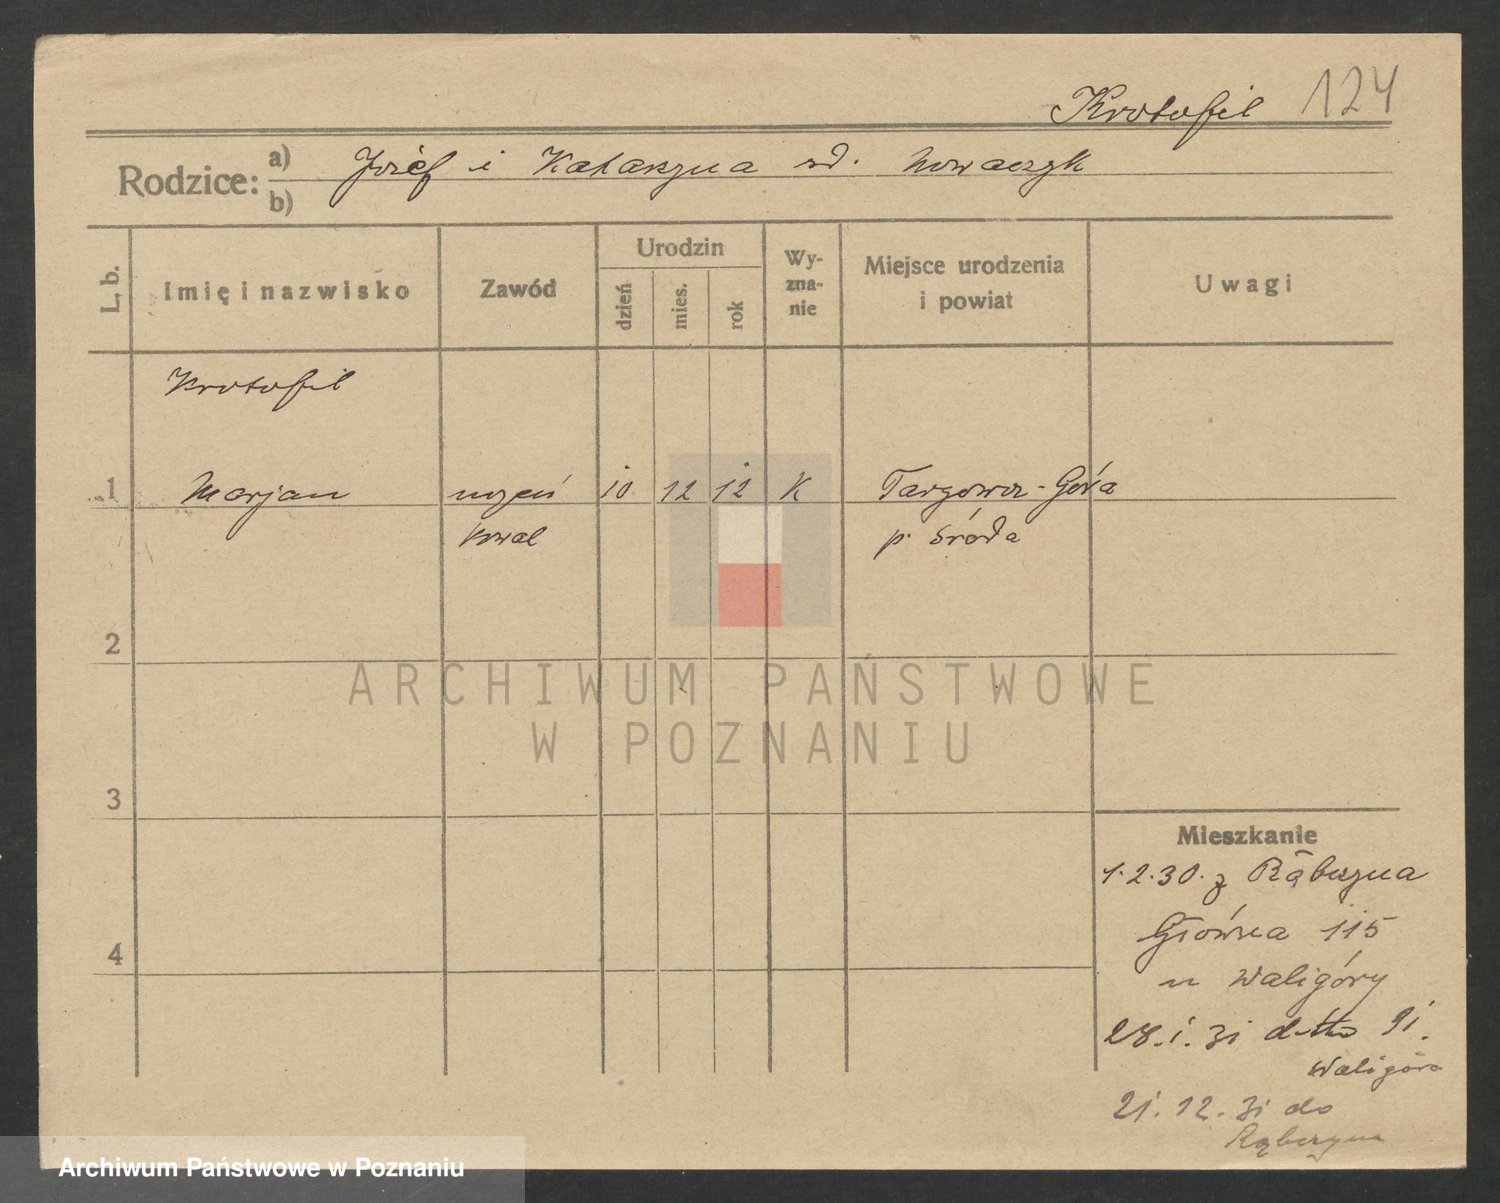 Krotofil 124
Rodzice: a) Józef i Katarzyna zd. Nowaczyk
b)
L. b. Imię i nazwisko Zawód Urodzin dzień mies. rok Wy-zna-nie Miejsce urodzenia i powiat Uwagi
Krotofil
1 Marjan uczeń 10 12 12 K Targowa-Góra
kowal p. Środa
2
ARCHIWUM PAŃSTWOWE
W POZNANIU
3
Mieszkanie
1.2.30. z Rąbczyna
Główna 115
4
u Waligóry
28.1.31 d-tto 91.
Waligóra
21.12.31 do
Rąbczyna
Archiwum Państwowe w Poznaniu